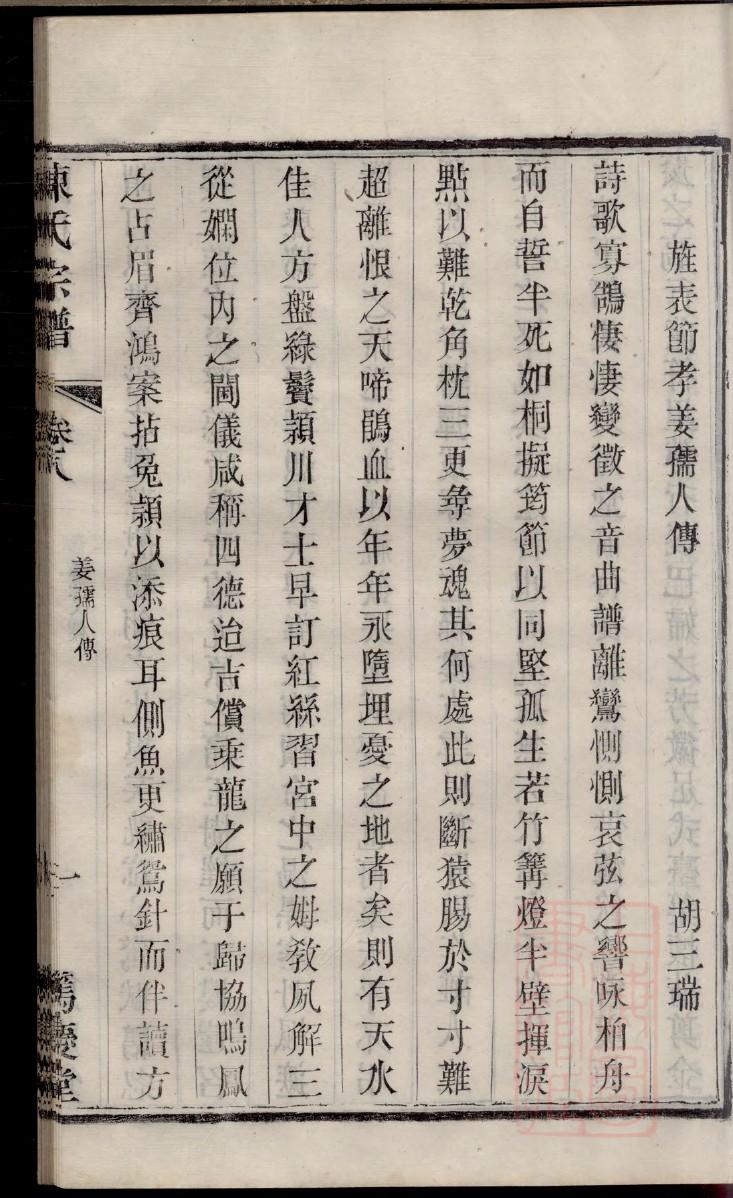 旌表節孝姜孺人傳 胡三瑞
詩歌寡鵠悽悽變徵之音曲譜離鸞惻惻哀弦之響咏柏舟
而自誓半死如桐擬筠節以同堅孤生若竹篝燈半壁揮淚
點以難乾角枕三更尋夢魂其何處此則斷猿腸於寸寸難
超離恨之天啼鵑血以年年永墮埋憂之地者矣則有天水
佳人方盤綠鬢潁川才士早訂紅絲習宮中之姆教夙解三
從嫻位內之閫儀咸稱四德迨吉償乘龍之願于歸協鳴鳳
之占眉齊鴻案拈兔潁以添痕耳側魚更繡鴛針而伴讀方
陳氏宗譜 卷八 姜孺人傳 一 篤慶堂